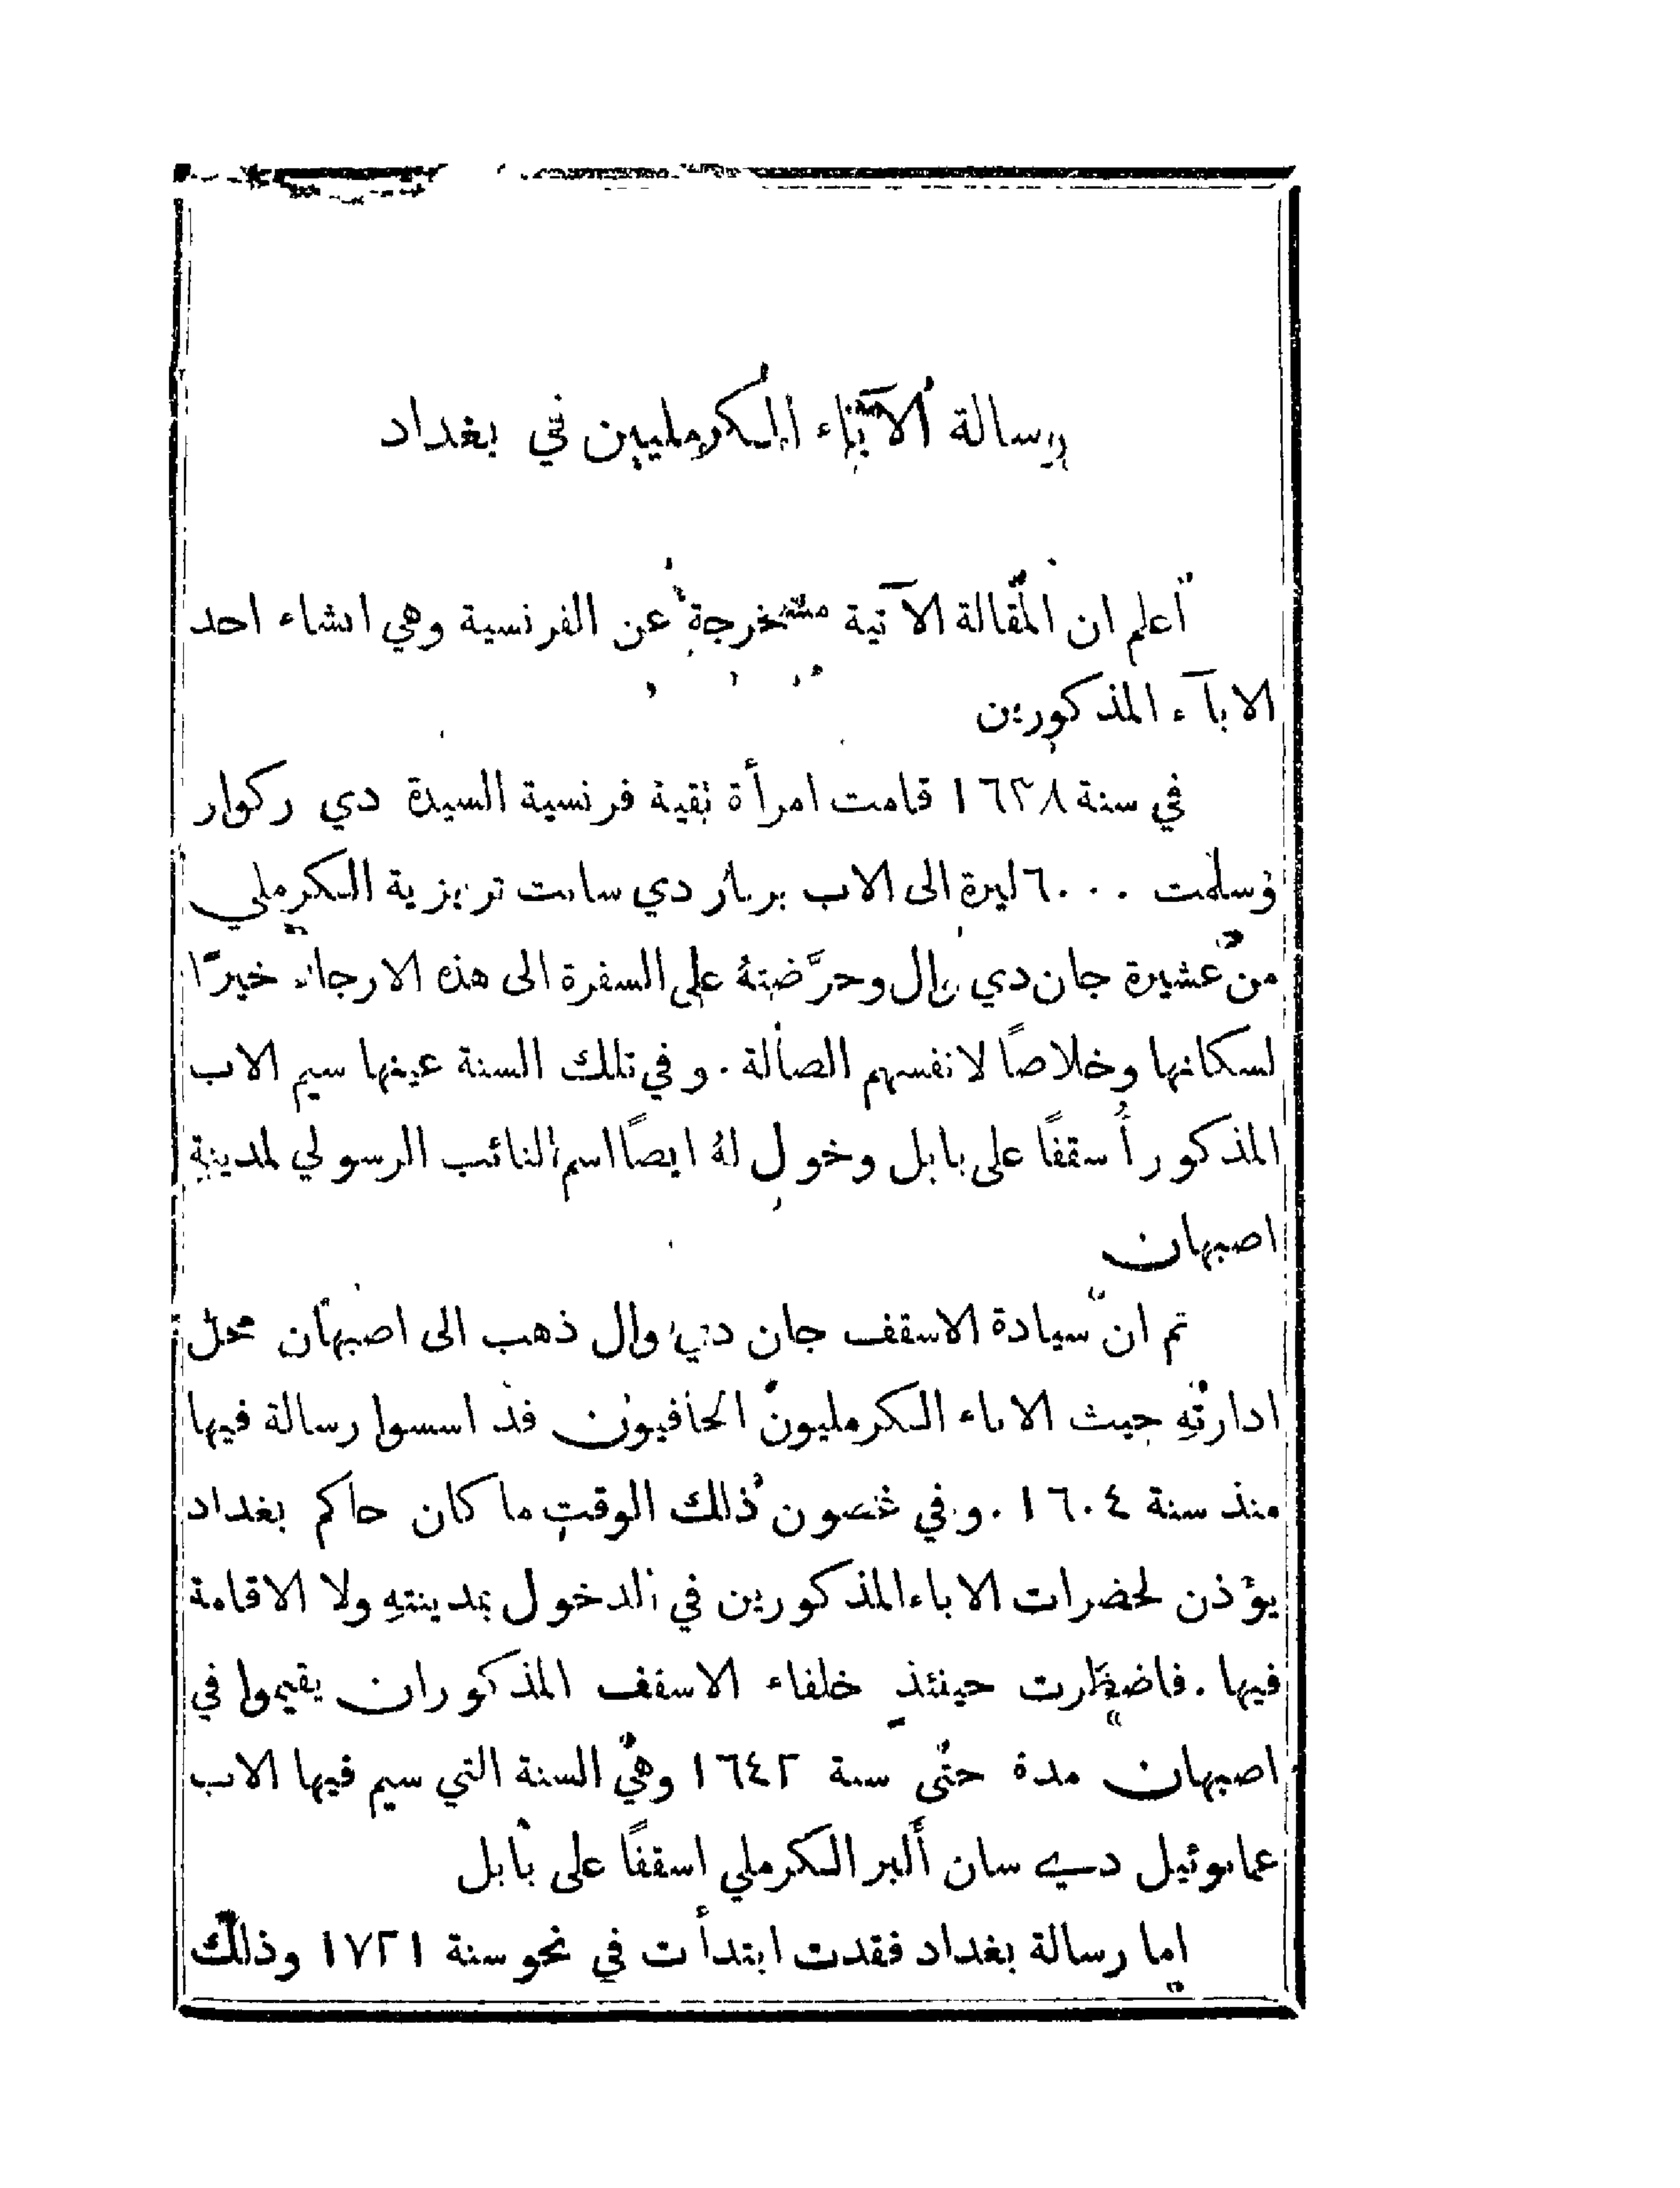 رسالة الآباء الكرمليين في بغداد
اعلم ان المقالة الآتية مستخرجة عن الفرنسية وهي انشاء احد
الابآء المذكورين
في سنة ١٦٣٨ قامت امرأة تقية فرنسية السيدة دي ركوار
وسلمت ٦٠٠٠ ليرة الى الاب برنار دي سانت تريزية الكرملي
من عشيرة جان دي وال وحرَّضتهُ على السفرة الى هذه الارجاء خيرًا
لسكانها وخلاصًا لانفسهم الضالة . وفي تلك السنة عينها سيم الاب
المذكور أسقفًا على بابل وخول لهُ ايضًا اسم النائب الرسولي لمدينة
اصبهان
ثم انّ سيادة الاسقف جان دي وال ذهب الى اصبهان محل
ادارتهِ حيث الاباء الكرمليون الحافيون قد اسسوا رسالة فيها
منذ سنة ١٦٠٤ . وفي غضون ذلك الوقت ما كان حاكم بغداد
يؤذن لحضرات الاباء المذكورين في الدخول بمدينتهِ ولا الاقامة
فيها . فاضطرت حينئذٍ خلفاء الاسقف المذكور ان يقيموا في
اصبهان مدة حتى سنة ١٦٤٢ وهي السنة التي سيم فيها الاب
عمانوئيل دي سان ألبر الكرملي اسقفًا على بابل
اما رسالة بغداد فقدت ابتدأت في نحو سنة ١٧٢١ وذلك